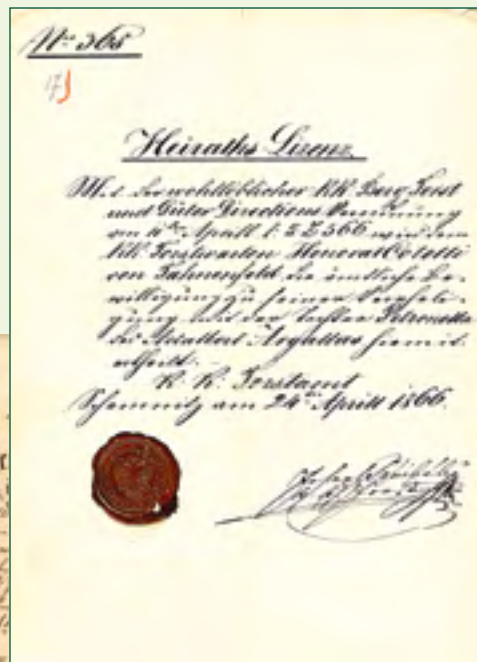 No 368
17
Heiraths Lizenz.
Mit der wohllöblicher KK Berg Forst
und Güter Directions Verordnung
Aprill l: J. Z 566 wird dem
KK Forstwarten Honorat Cotelli
von Fahnenfeld die ämtliche Be-
willigung zu seiner Vereheli-
gung mit der Tochter Petronella
des Adalbert Argallas hiemit
ertheilt.
K. K. Forstamt
Schemnitz am 24ten Aprill 1866.